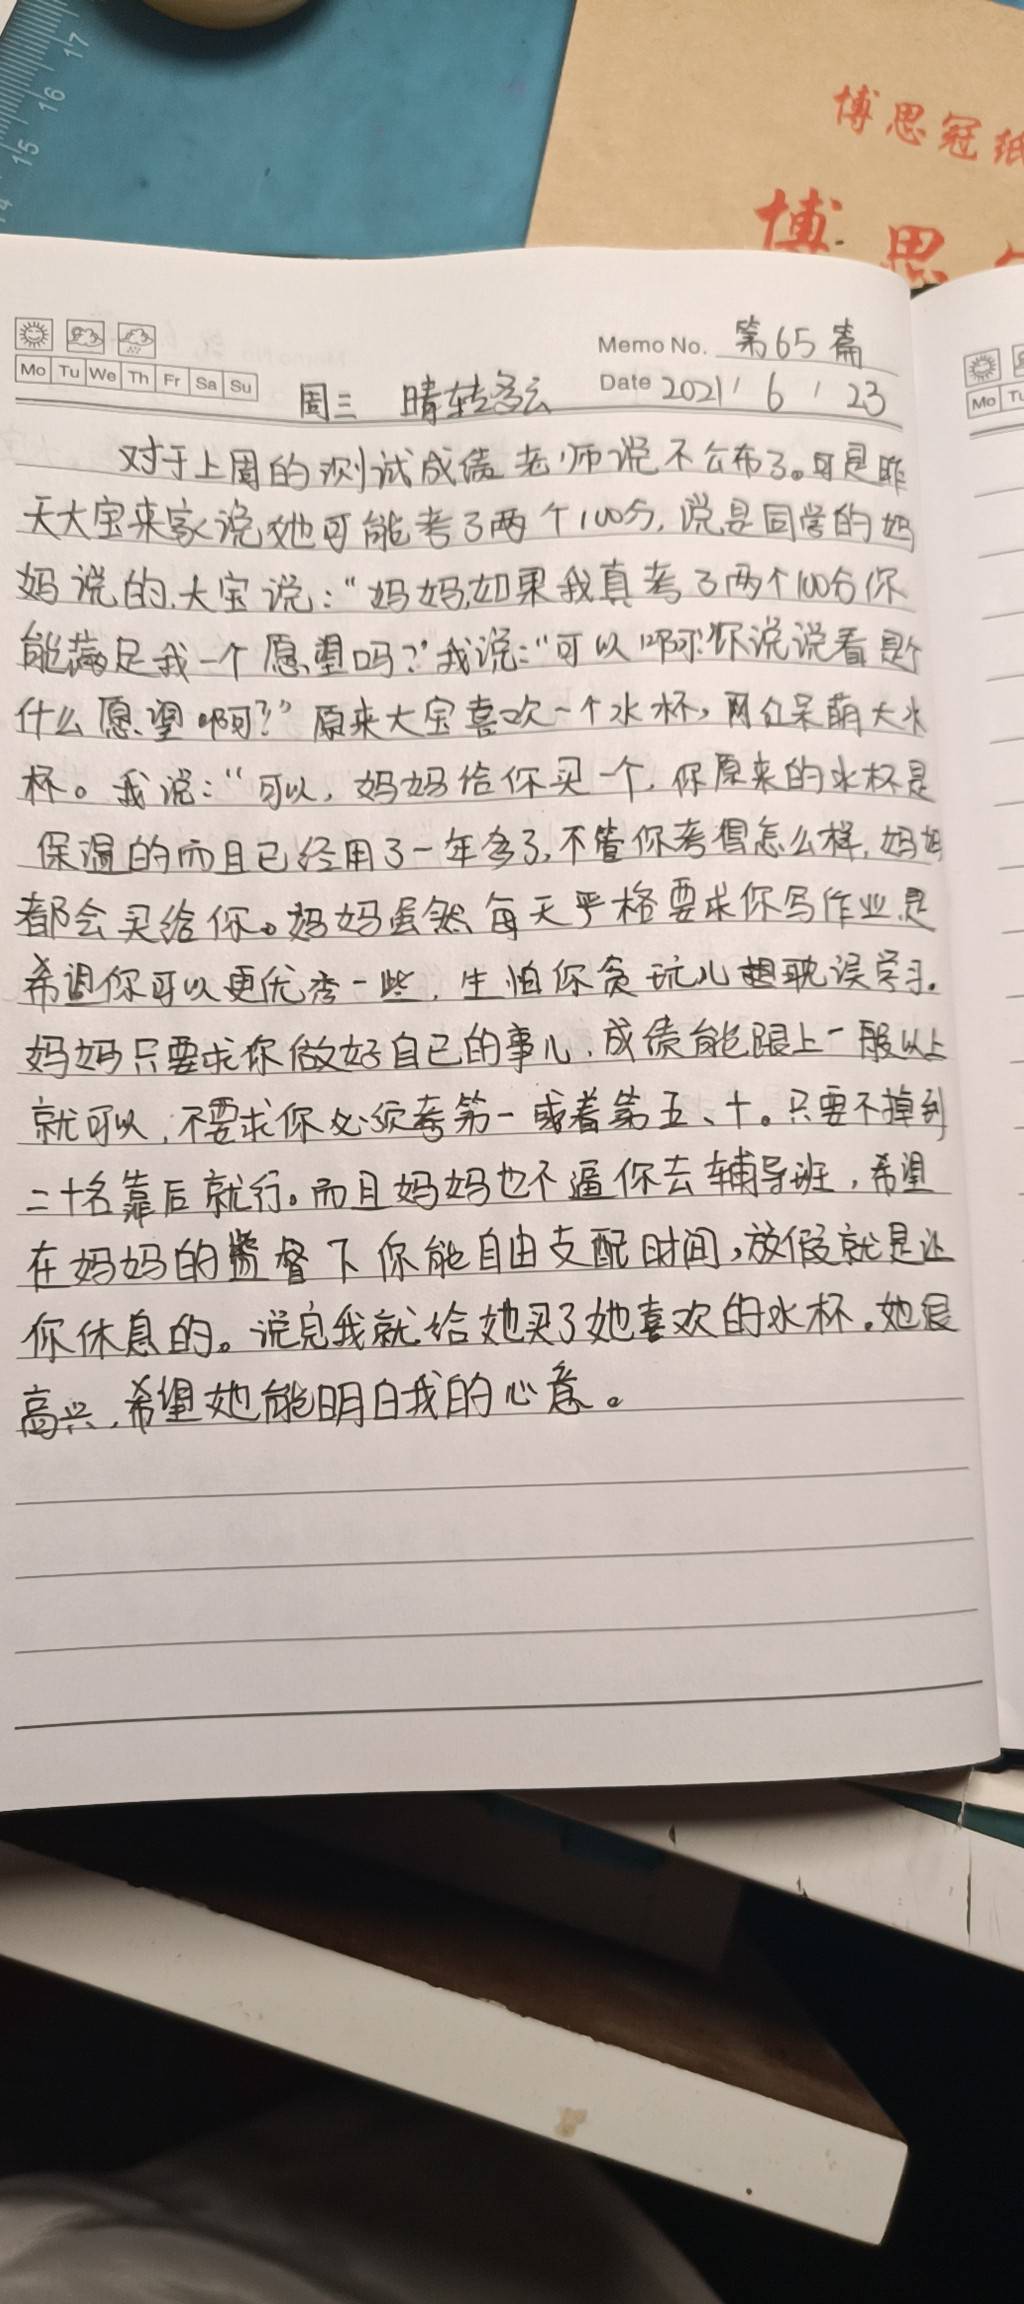 17
16
15
14
博思冠纸
博思
Memo No. 第65篇
Mo Tu We Th Fr Sa Su
Date 2021 / 6 / 23
周三 晴转多云
Mo Tu
对于上周的测试成绩老师说不公布了。可是昨
天大宝来家说她可能考了两个100分,说是同学的妈
妈说的.大宝说:“妈妈,如果我真考了两个100分你
能满足我一个愿望吗?”我说:“可以啊!你说说看是个
什么愿望啊?”原来大宝喜欢一个水杯,网红呆萌大水
杯。我说:“可以,妈妈给你买一个,你原来的水杯是
保温的而且已经用了一年多了,不管你考得怎么样,妈妈
都会买给你。妈妈虽然每天严格要求你写作业是
希望你可以更优秀一些,生怕你贪玩儿耽误学习。
妈妈只要求你做好自己的事儿,成绩能跟上一般以上
就可以,不要求你必须考第一或着第五、十。只要不掉到
二十名靠后就行。而且妈妈也不逼你去辅导班,希望
在妈妈的监督下你能自由支配时间,放假就是让
你休息的。说完我就给她买了她喜欢的水杯。她很
高兴,希望她能明白我的心意。